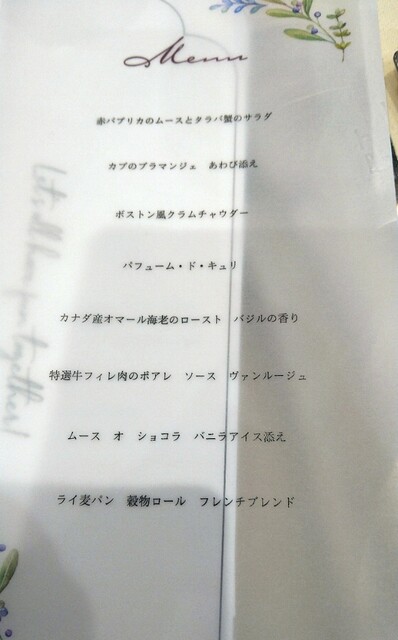 Menu
赤パプリカのムースとタラバ蟹のサラダ
カブのブラマンジェ あわび添え
ボストン風クラムチャウダー
パフューム・ド・キュリ
カナダ産オマール海老のロースト バジルの香り
特選牛フィレ肉のポアレ ソース ヴァンルージュ
ムース オ ショコラ バニラアイス添え
ライ麦パン 穀物ロール フレンチブレンド
Let's all have fun together!